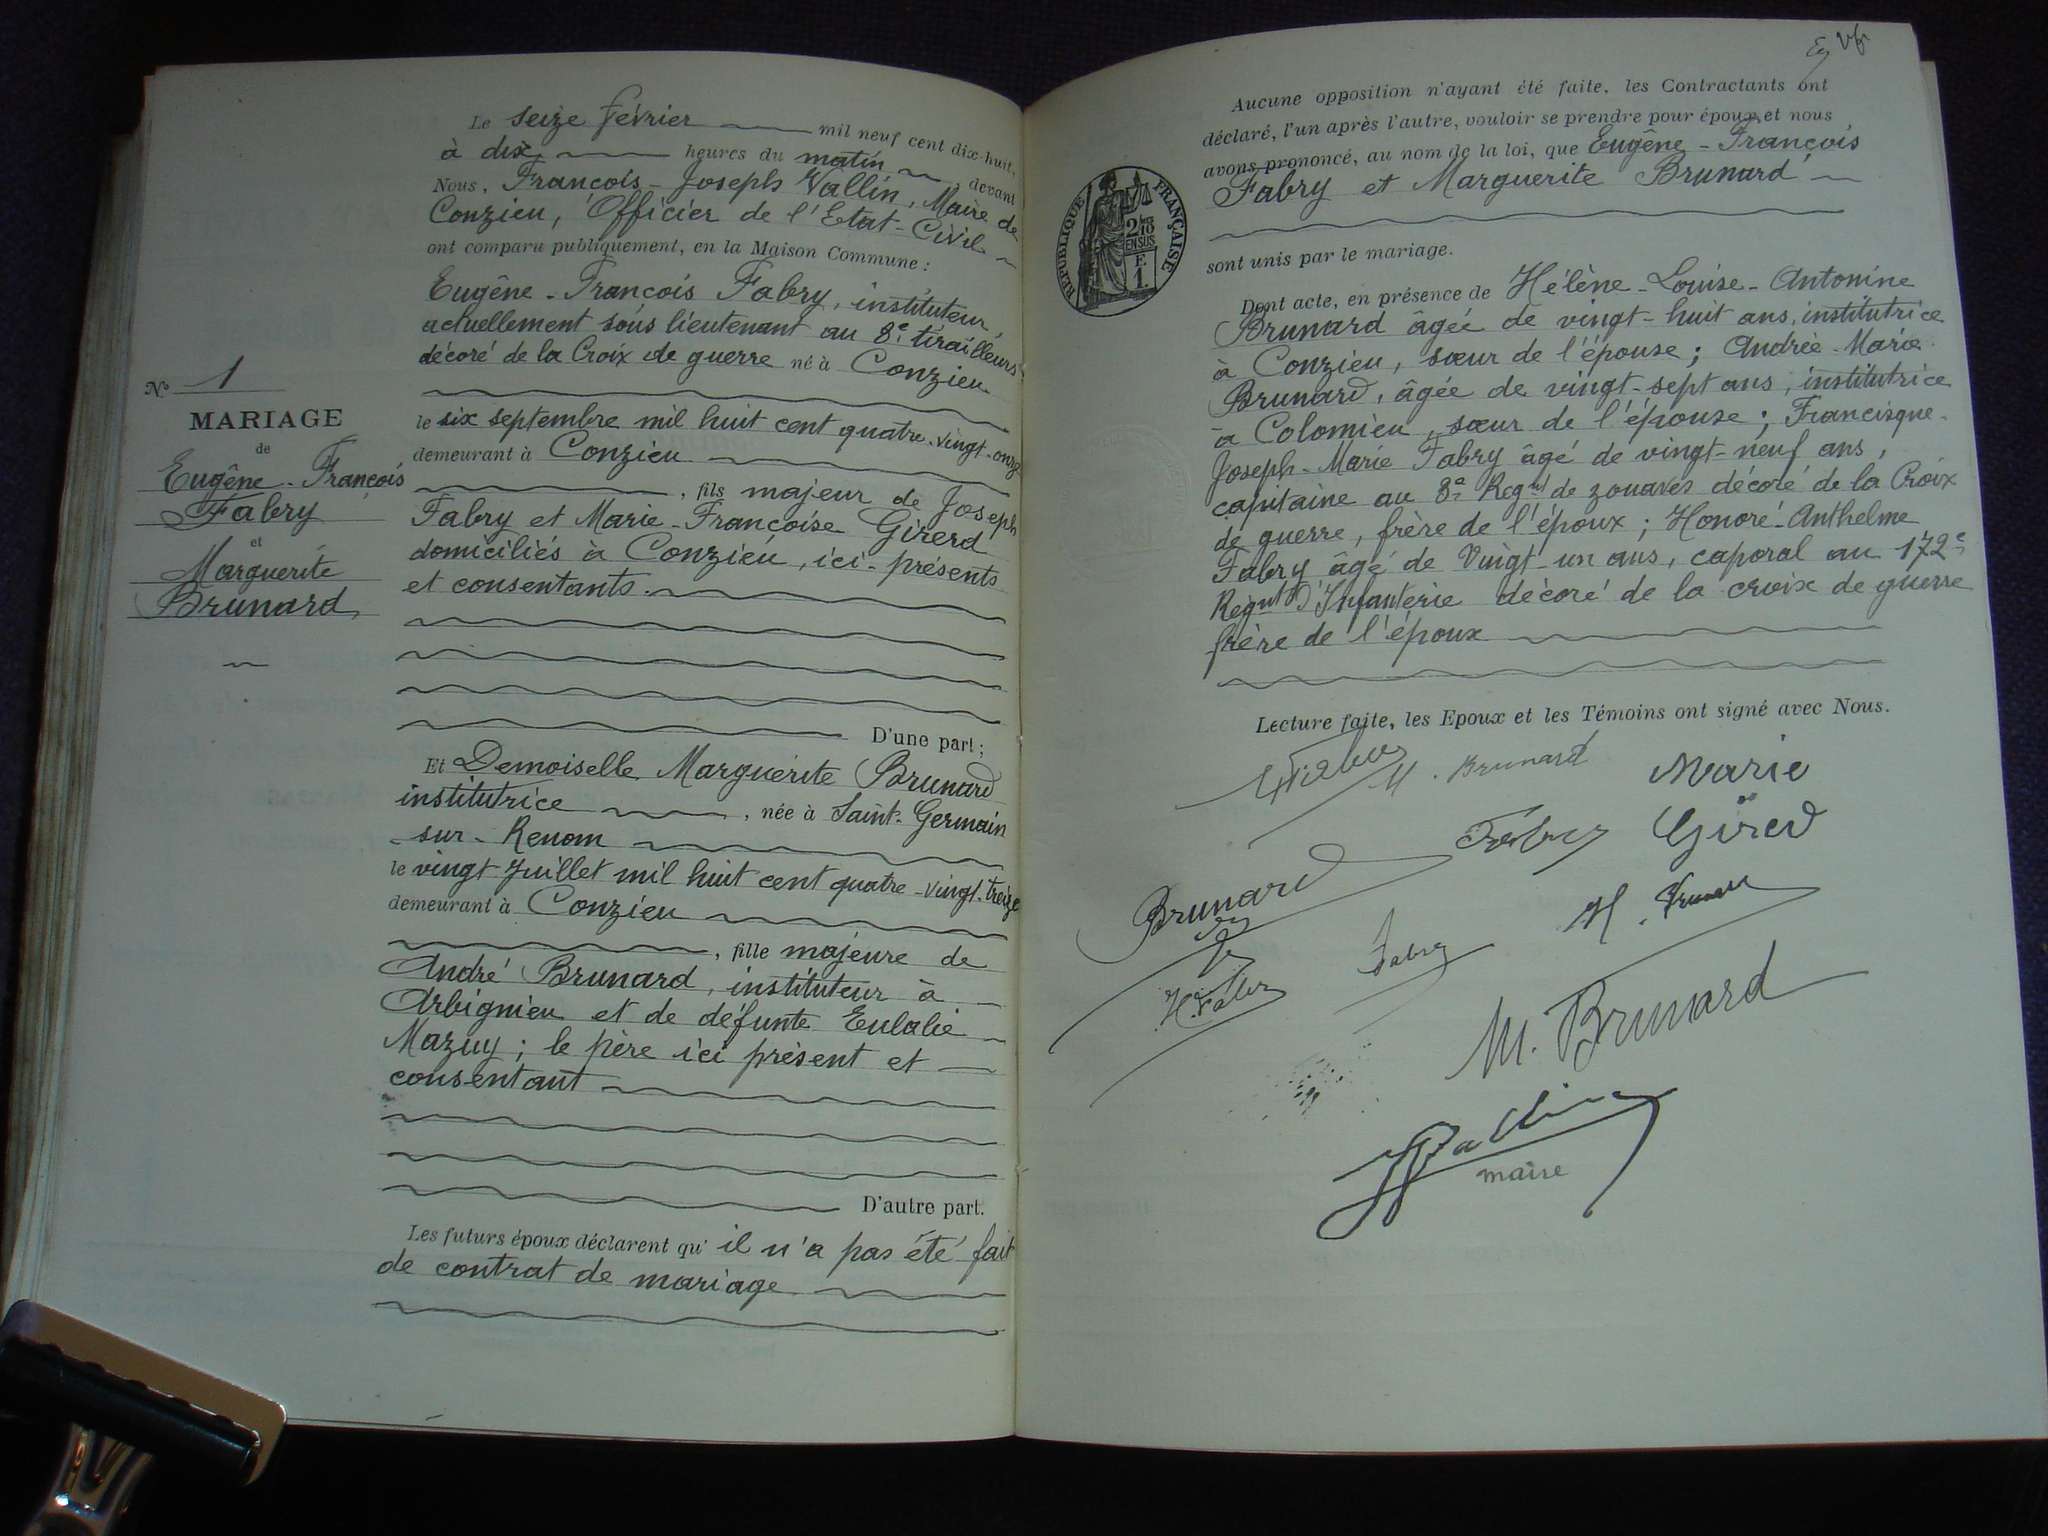 N° 1
MARIAGE
de
Eugêne-François
Fabry
et
Marguerite
Brunard
Le seize février mil neuf cent dix-huit,
à dix heures du matin, devant
Nous, François-Joseph Vallin, Maire de
Conzieu, Officier de l'Etat-Civil
ont comparu publiquement, en la Maison Commune :
Eugêne-François Fabry, instituteur,
actuellement sous lieutenant au 8e tirailleurs
décoré de la Croix de guerre né à Conzieu
le six septembre mil huit cent quatre-vingt-onze
demeurant à Conzieu
, fils majeur de Joseph
Fabry et Marie-Françoise Girerd
domiciliés à Conzieu, ici-présents
et consentants.
D'une part ;
Et Demoiselle Marguerite Brunard
institutrice, née à Saint-Germain
-sur-Renom
le vingt juillet mil huit cent quatre-vingt-treize
demeurant à Conzieu
, fille majeure de
André Brunard, instituteur à
Arbignieu et de défunte Eulalie
Mazuy ; le père ici présent et
consentant
D'autre part.
Les futurs époux déclarent qu'il n'a pas été fait
de contrat de mariage
Aucune opposition n'ayant été faite, les Contractants ont
déclaré, l'un après l'autre, vouloir se prendre pour époux, et nous
avons prononcé, au nom de la loi, que Eugêne-François
Fabry et Marguerite Brunard
sont unis par le mariage.
RÉPUBLIQUE FRANÇAISE
2/10
EN SUS
F.
1.
Dont acte, en présence de Hélène-Louise-Antonine
Brunard âgée de vingt-huit ans, institutrice
à Conzieu, sœur de l'épouse ; Andrée-Marie
Brunard, âgée de vingt-sept ans, institutrice
à Colomieu, sœur de l'épouse ; Francisque-
Joseph-Marie Fabry âgé de vingt-neuf ans,
capitaine au 8e Regnt de zouaves décoré de la Croix
de guerre, frère de l'époux ; Honoré-Anthelme
Fabry âgé de Vingt-un ans, caporal au 172e
Regnt D'Infanterie décoré de la croix de guerre
frère de l'époux
Lecture faite, les Epoux et les Témoins ont signé avec Nous.
M. Brunard
Marie
Girerd
Fabry
Brunard
H. Brunard
Fabry
H. Fabry
M. Brunard
Vallin
maire